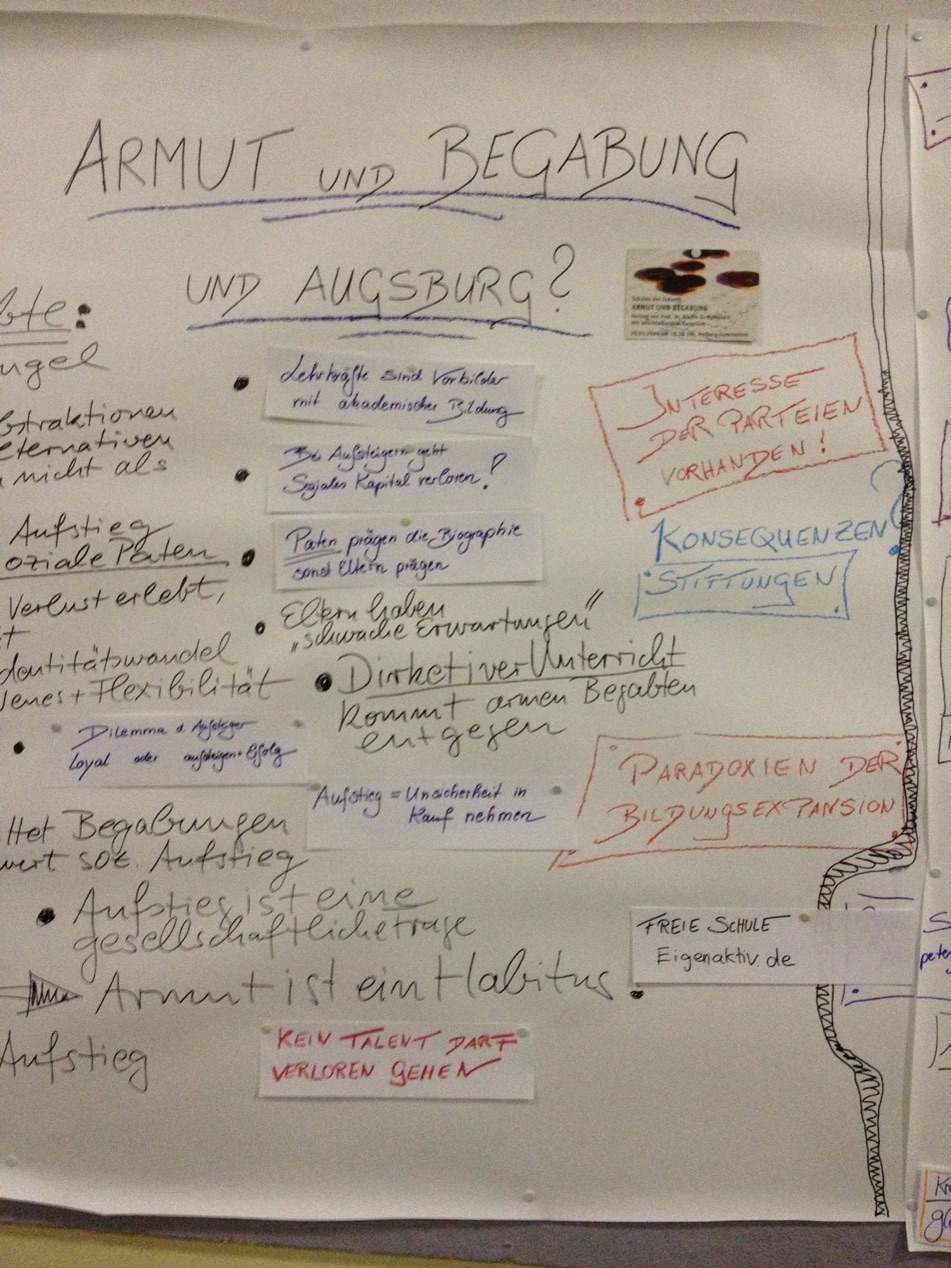 ARMUT UND BEGABUNG
UND AUGSBURG?
ARMUT UND BEGABUNG
Lehrkräfte sind Vorbilder
mit akademischer Bildung
Bei Aufsteigern geht
Soziales Kapital verloren?
Paten prägen die Biographie
sonst Eltern prägen
Eltern haben
„schwache Erwartungen"
Dirketiver Unterricht
kommt armen Begabten
entgegen
INTERESSE
DER PARTEIEN
VORHANDEN!
KONSEQUENZEN?
STIFTUNGEN
PARADOXIEN DER
BILDUNGSEXPANSION
bte:
ngel
bstraktionen
lternativen
nicht als
Aufstieg
oziale Paten
Verlust erlebt,
t
dentitätswandel
enes + Flexibilität
Dilemma d. Aufsteiger
Loyal oder aufsteigen + Erfolg
Aufstieg = Unsicherheit in
Kauf nehmen
ttet Begabungen
wert soz. Aufstieg
Aufstieg ist eine
gesellschaftliche Frage
Armut ist ein Habitus.
Aufstieg
KEIN TALENT DARF
VERLOREN GEHEN
FREIE SCHULE
Eigenaktiv.de
S
peter